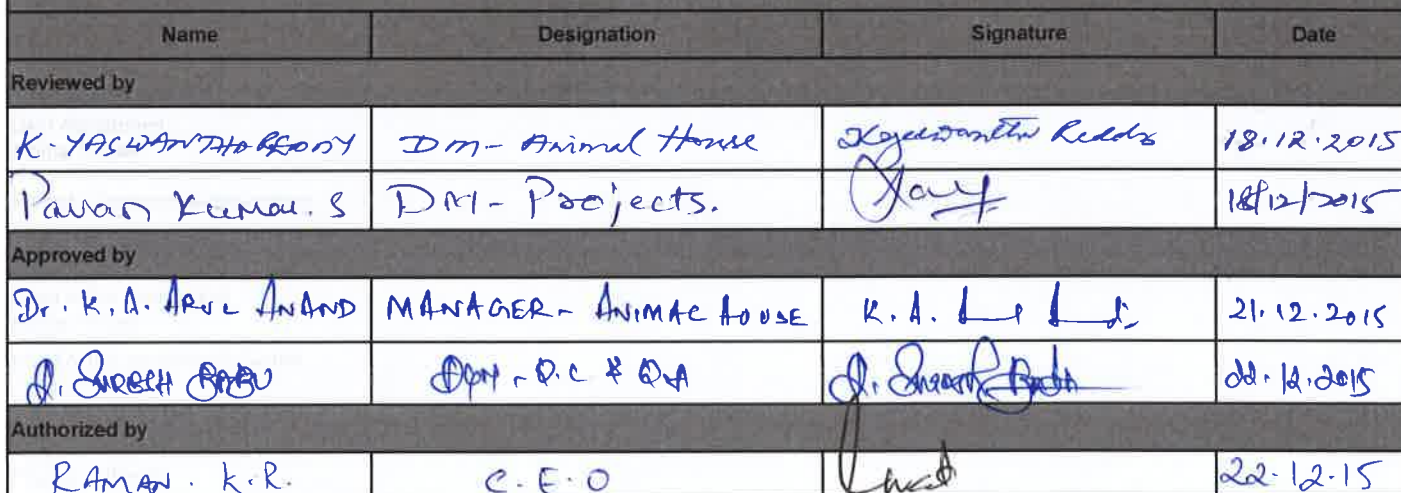 Name Designation Signature Date
Reviewed by
K. YASWANTH REDDY DM - Animal House Kyaswanth Reddy 18.12.2015
Pavan Kumar. S DM - Projects. 18/12/2015
Approved by
Dr. K. A. ARUL ANAND MANAGER - ANIMAL HOUSE K. A. 21.12.2015
SURESH BABU DGM - Q.C & QA 22.12.2015
Authorized by
RAMAN. K.R. C.E.O 22.12.15